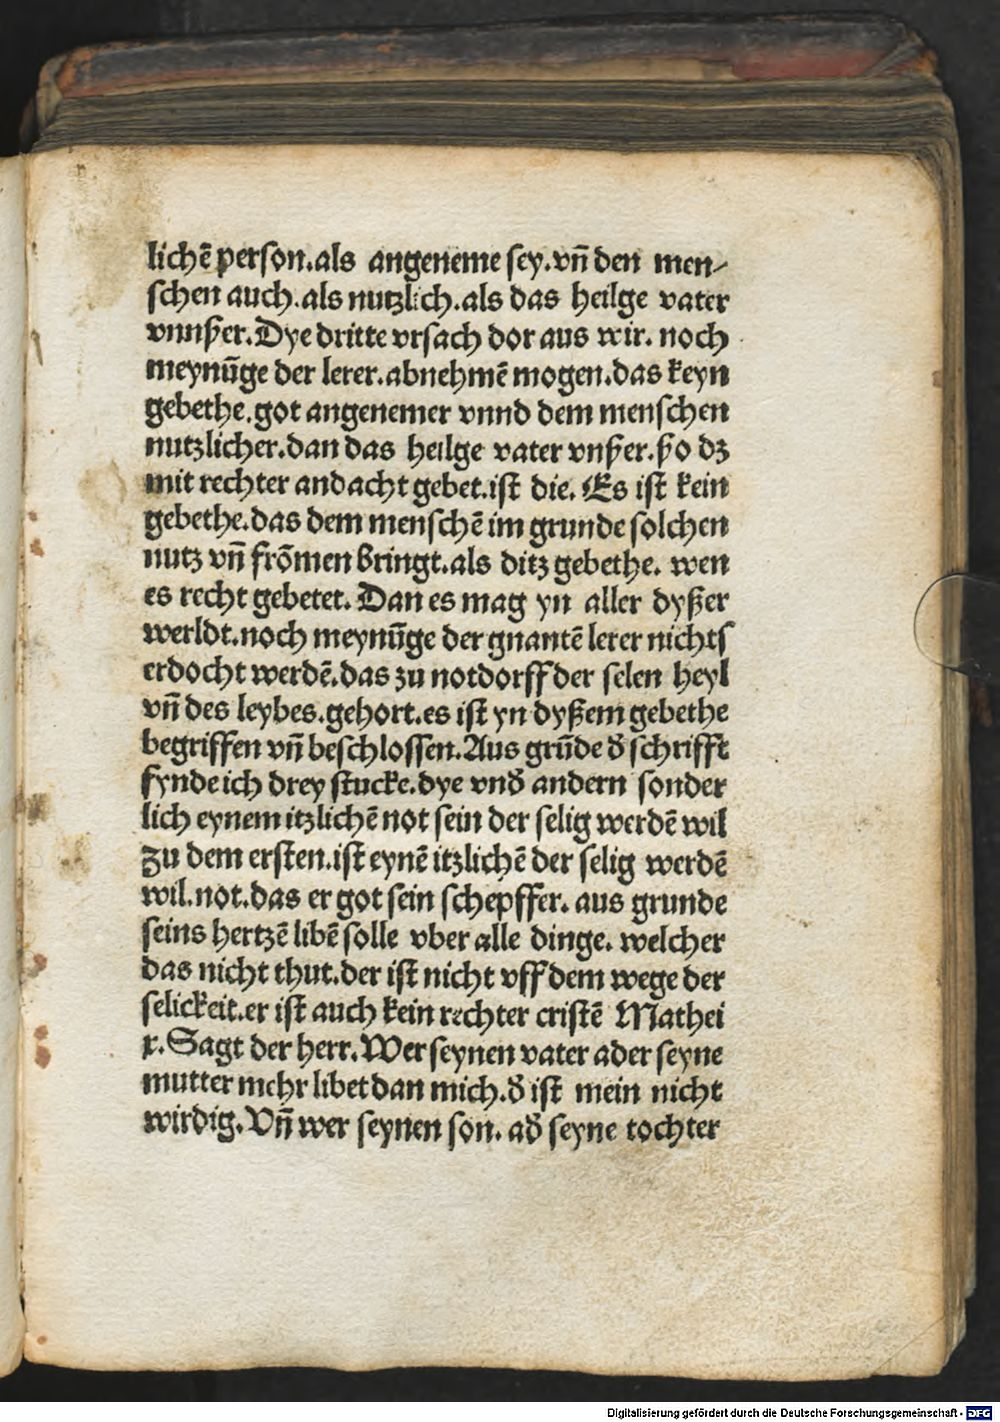 lichē person.als angeneme sey.vn̄ den men⸗
schen auch.als nutzlich.als das heilge vater
vnnßer.Dye dritte vrsach dor aus wir. noch
meynūge der lerer.abnehmē mogen.das keyn
gebethe.got angenemer vnnd dem menschen
nutzlicher.dan das heilge vater vnßer.ßo dz
mit rechter andacht gebet.ist die. Es ist kein
gebethe.das dem menschē im grunde solchen
nutz vn̄ frōmen bringt.als ditz gebethe. wen
es recht gebetet. Dan es mag yn aller dyßer
werldt.noch meynūge der gnantē lerer nichts
erdocht werdē.das zu notdorff der selen heyl
vn̄ des leybes.gehort.es ist yn dyßem gebethe
begriffen vn̄ beschlossen.Aus grūde d̄ schrifft
fynde ich drey stucke.dye vnd̄ andern sonder
lich eynem itzlichē not sein der selig werdē wil
Zu dem ersten.ist eynē itzlichē der selig werdē
wil.not.das er got sein schepffer. aus grunde
seins hertzē libē solle vber alle dinge. welcher
das nicht thut.der ist nicht vff dem wege der
selickeit.er ist auch kein rechter cristē Mathei
x. Sagt der herr. Wer seynen vater ader seyne
mutter mehr libet dan mich.d̄ ist mein nicht
wirdig. Vn̄ wer seynen son. ad̄ seyne tochter
Digitalisierung gefördert durch die Deutsche Forschungsgemeinschaft - DFG